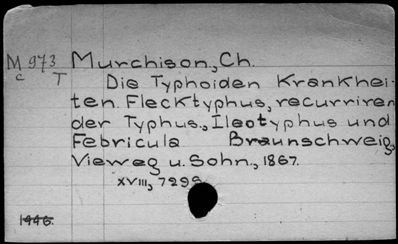 M 973 Murchison, Ch.
c T Die Typhoiden Krankhei-
ten. Flecktyphus, recurriren
der Typhus., Ileotyphus und
Febricula Braunschweig,
Vieweg u. Sohn., 1867.
XVIII, 729S.
1446.